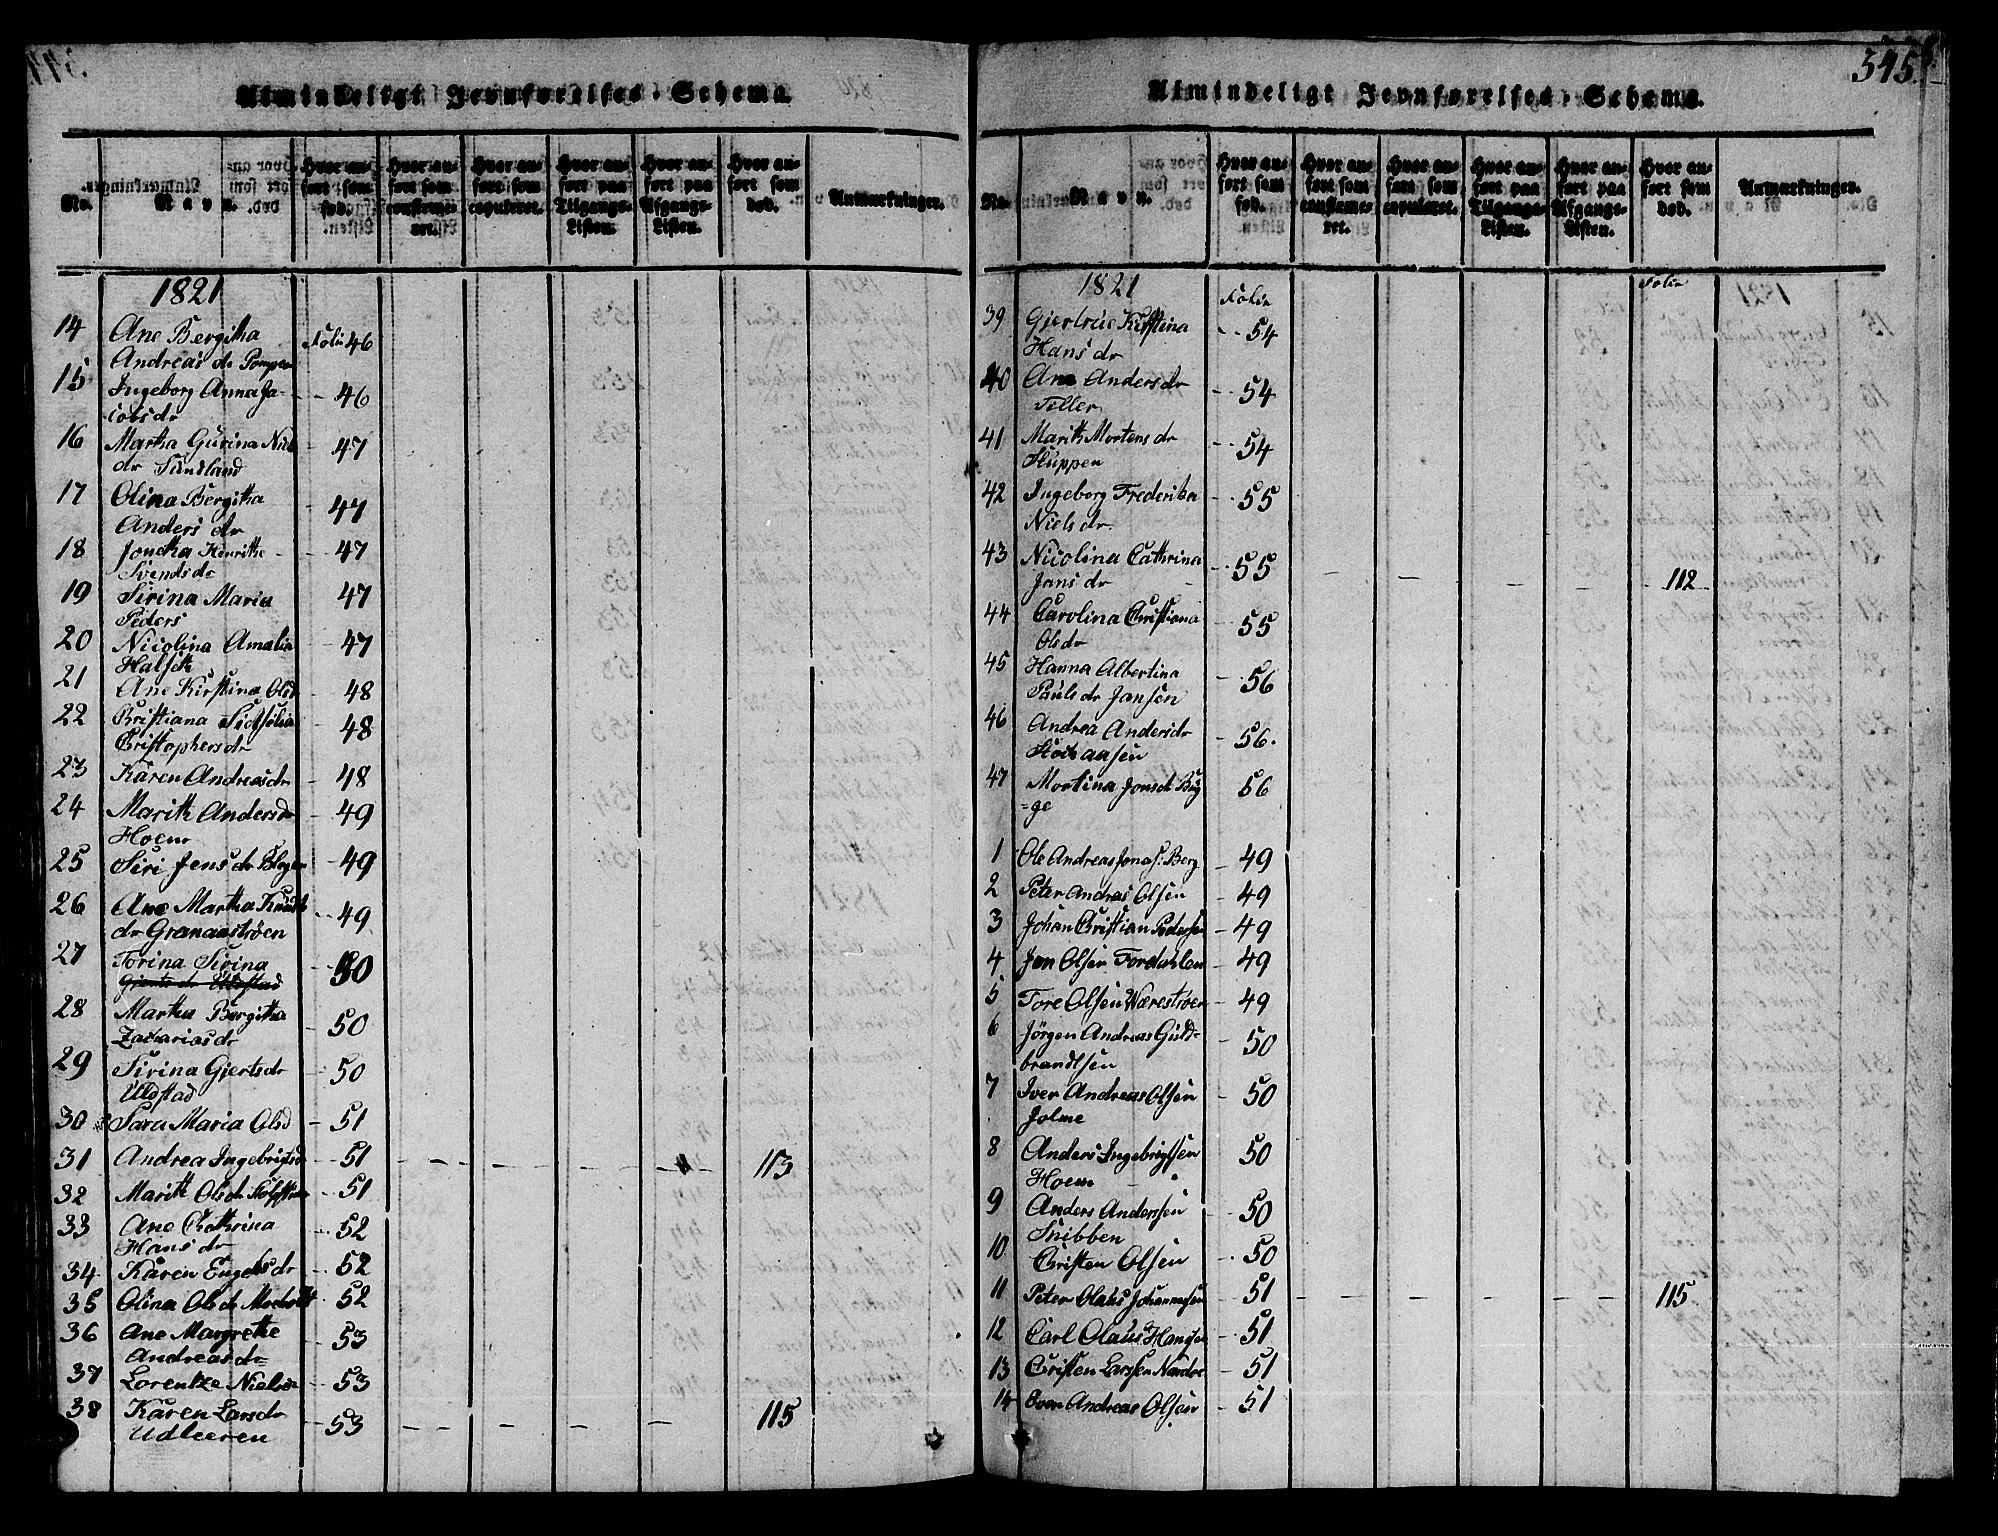 Almindeligt Jevnførelses-Schema.
No.
Navn.
Hvor an-
ført som
fød.
Hvor an-
ført som
confirme-
ret.
Hvor an-
ført som
copuleret.
Hvor an-
ført paa
Tilgangs-
Listen.
Hvor an-
ført paa
Afgangs-
Listen.
Hvor an-
ført som
død.
Anmærkninger.
1821
14 Ane Bergitha Folio 46
Andreas dr
15 Ingeborg Anna Ja- 46
cobs dr
16 Martha Gurina Niels 47
dr Sundland
17 Olina Bergitha 47
Anders dr
18 Jonetha Henrithe 47
Svends dr
19 Sirina Maria 47
Peders
20 Nicolina Amalia 47
Halseth
21 Ane Kirstina Olsd 48
22 Christiana Sidselia 48
Christophers dr
23 Karen Andreasdr 48
24 Marith Andersdr 49
Hoem
25 Siri Jens dr 49
26 Ane Martha Knuds 49
dr Granaastrøen
27 Torina Sirina 50
Gjerts dr Uldstad
28 Martha Bergitha 50
Zacharias dr
29 Sirina Gjertsdr 50
Uldstad
30 Sara Maria Olsd 51
31 Andrea Ingebrigtsd 51 113
32 Marith Olsdr 51
33 Ane Cathrina 52
Hans dr
34 Karen Engels dr 52
35 Olina Ols dr 52
36 Ane Margrethe 53
Andreas dr
37 Lorentze Nielsdr 53
38 Karen Larsdr 53 115
Udleeren
345.
Almindeligt Jevnførelses-Schema.
No.
Navn.
Hvor an-
ført som
fød.
Hvor an-
ført som
confirme-
ret.
Hvor an-
ført som
copuleret.
Hvor an-
ført paa
Tilgangs-
Listen.
Hvor an-
ført paa
Afgangs-
Listen.
Hvor an-
ført som
død.
Anmærkninger.
1821 Folio Folio
39 Gjertrue Kirstina 54
Hans dr
40 Ane Anders dr 54
Tiller
41 Marith Mortens dr 54
Sluppen
42 Ingeborg Frederika 55
Niels dr
43 Nicolina Cathrina 55 112
Jens dr
44 Carolina Christiana 55
Olsdr
45 Hanna Albertina 56
Pauls dr Jansen
46 Andrea Andersdr 56.
47 Mortina Jonsdr Bug 56
=ge
1 Ole Andreas Jonas. Berg 49
2 Peter Andreas Olsen 49
3 Johan Christian Pedersen 49
4 Jon Olsen Fordahlen 49
5 Tore Olsen Wærestrøen 49
6 Jörgen Andreas Guld- 50
brandtsen
7 Iver Andreas Olsen 50
Jolme
8 Anders Ingebrigtsen 50
Hoem
9 Anders Andersen 50
Snibben
10 Christen Olsen 50
11 Peter Olaus Johannesen 51 115
12 Carl Olaus Hansen 51
13 Christen Larsen Nardoe 51
14 Even Andreas Olsen 51